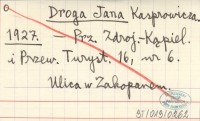 Droga Jana Kasprowicza
1927. — Prz. Zdroj.-Kąpiel.
i Przew. Turyst. 16, nr 6.
Ulica w Zakopanem.